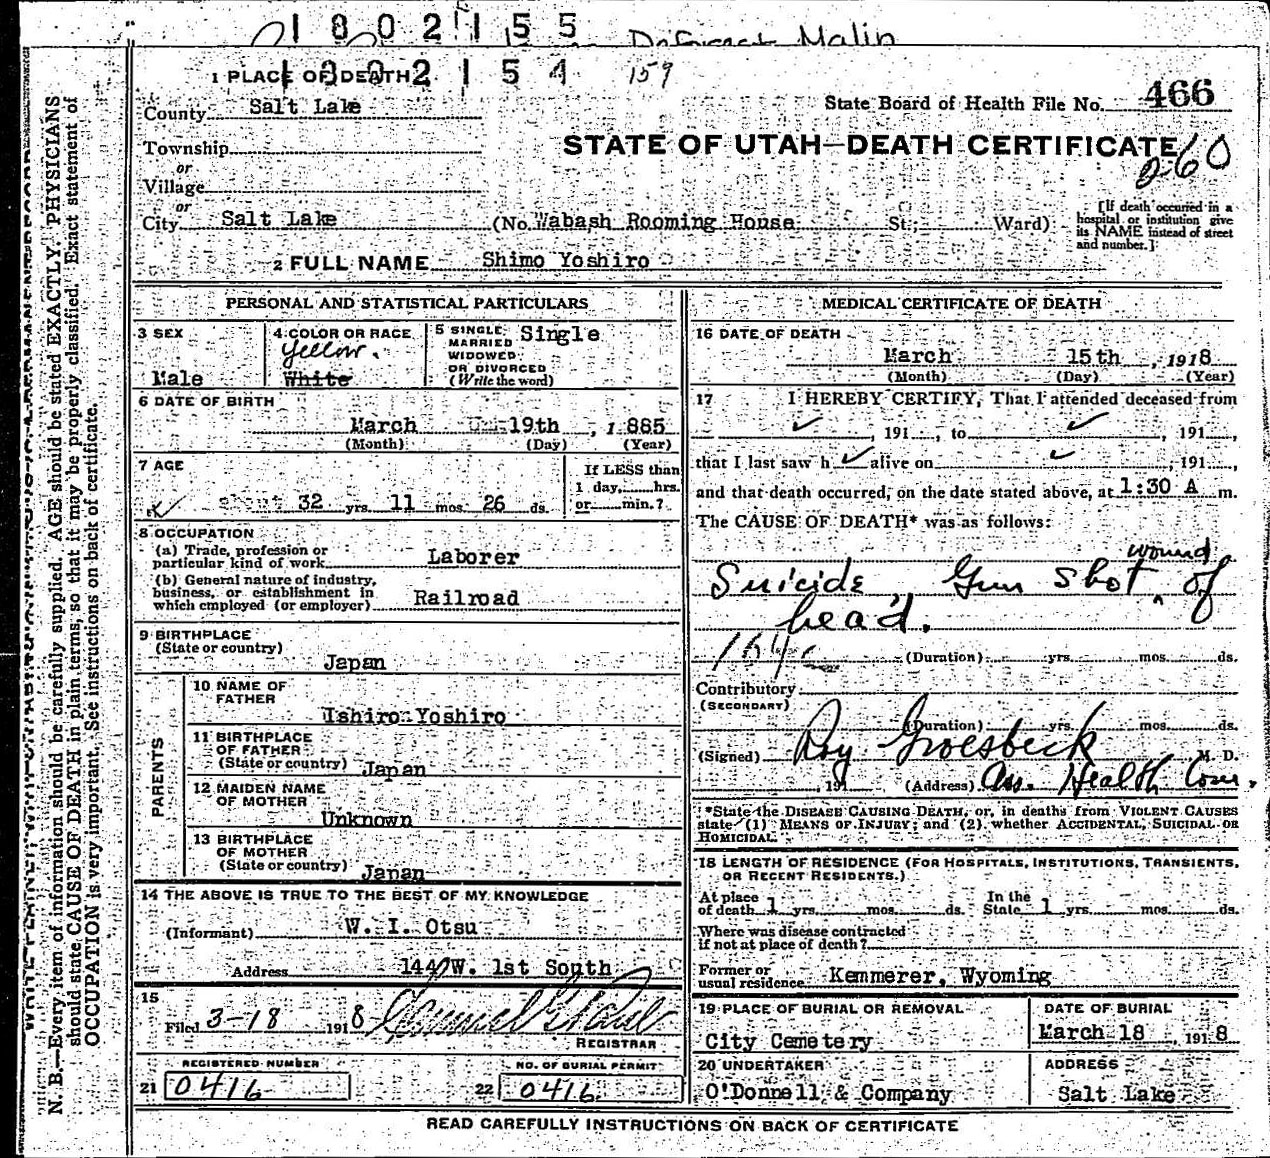 1802155
DeForest Malin
1802154
159
1 PLACE OF DEATH
State Board of Health File No. 466
County Salt Lake
STATE OF UTAH—DEATH CERTIFICATE
260
Township
or
Village
or
City Salt Lake (No. Wabash Rooming House St.; Ward)
[If death occurred in a
hospital or institution give
its NAME instead of street
and number.]
2 FULL NAME Shimo Yoshiro
PERSONAL AND STATISTICAL PARTICULARS
3 SEX
Male
4 COLOR OR RACE
Yellow.
White
5 SINGLE,
MARRIED
WIDOWED
OR DIVORCED
(Write the word)
Single
6 DATE OF BIRTH
March 19th, 1885
(Month) (Day) (Year)
7 AGE
about 32 yrs. 11 mos. 26 ds.
If LESS than
1 day, hrs.
or min.?
8 OCCUPATION
(a) Trade, profession or
particular kind of work Laborer
(b) General nature of industry,
business, or establishment in
which employed (or employer) Railroad
9 BIRTHPLACE
(State or country)
Japan
PARENTS
10 NAME OF
FATHER
Ishiro Yoshiro
11 BIRTHPLACE
OF FATHER
(State or country) Japan
12 MAIDEN NAME
OF MOTHER
Unknown
13 BIRTHPLACE
OF MOTHER
(State or country) Japan
14 THE ABOVE IS TRUE TO THE BEST OF MY KNOWLEDGE
(Informant) W. I. Otsu
Address 144 W. 1st South
15
Filed 3-18 1918
REGISTRAR
REGISTERED NUMBER
21 0416
NO. OF BURIAL PERMIT
22 0416
MEDICAL CERTIFICATE OF DEATH
16 DATE OF DEATH
March 15th, 1918
(Month) (Day) (Year)
17 I HEREBY CERTIFY, That I attended deceased from
✓, 191 , to ✓, 191 ,
that I last saw h ✓ alive on ✓, 191 ,
and that death occurred, on the date stated above, at 1:30 A m.
The CAUSE OF DEATH* was as follows:
Suicide, Gun shot wound of
head.
(Duration) yrs. mos. ds.
Contributory
(SECONDARY)
(Duration) yrs. mos. ds.
(Signed) Roy Groesbeck M. D.
, 191 (Address) Ass. Health Com.
*State the DISEASE CAUSING DEATH, or, in deaths from VIOLENT CAUSES
state (1) MEANS OF INJURY; and (2) whether ACCIDENTAL, SUICIDAL OR
HOMICIDAL.
18 LENGTH OF RESIDENCE (FOR HOSPITALS, INSTITUTIONS, TRANSIENTS,
OR RECENT RESIDENTS.)
At place
of death 1 yrs. mos. ds.
In the
State 1 yrs. mos. ds.
Where was disease contracted
if not at place of death?
Former or
usual residence Kemmerer, Wyoming
19 PLACE OF BURIAL OR REMOVAL
City Cemetery
DATE OF BURIAL
March 18, 1918
20 UNDERTAKER
O'Donnell & Company
ADDRESS
Salt Lake
READ CAREFULLY INSTRUCTIONS ON BACK OF CERTIFICATE
N. B.—Every item of information should be carefully supplied. AGE should be stated EXACTLY. PHYSICIANS
should state CAUSE OF DEATH in plain terms, so that it may be properly classified. Exact statement of
OCCUPATION is very important. See instructions on back of certificate.